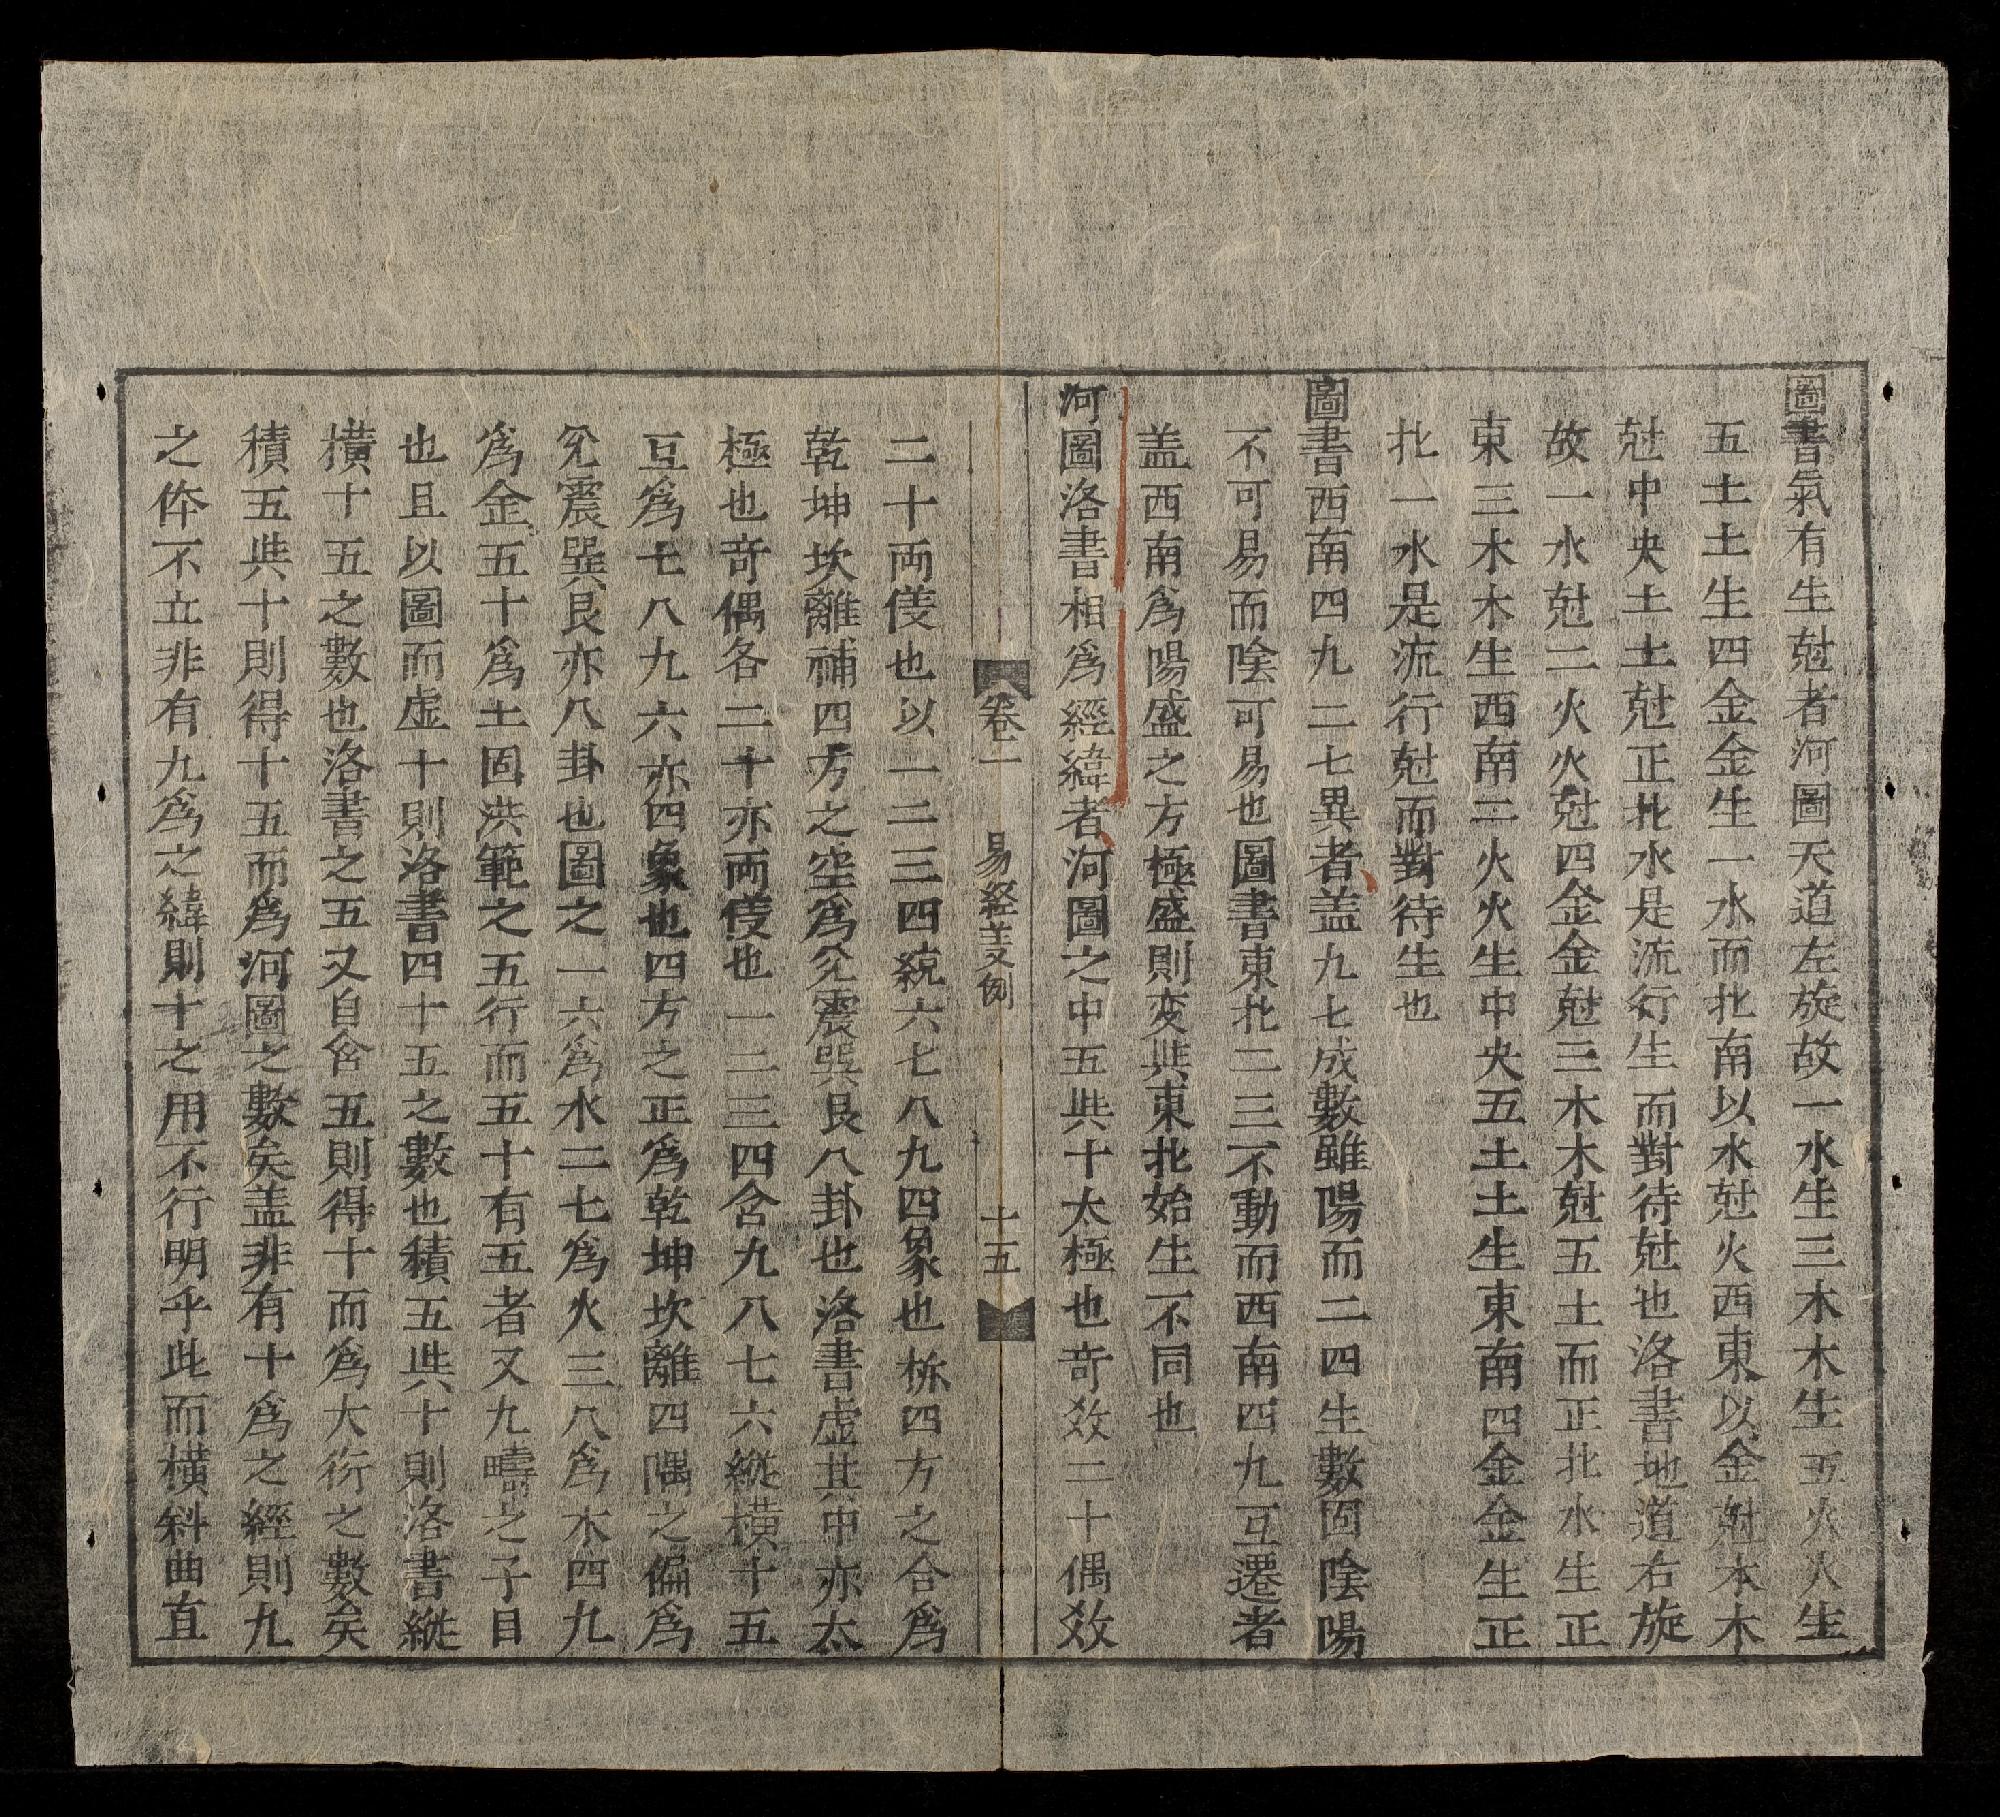 圖書氣有生尅者河圖天道左旋故一水生三木木生二火火生
五土土生四金金生一水而北南以水尅火西東以金尅木木
尅中央土土尅正北水是流行生而對待尅也洛書地道右旋
故一水尅二火火尅四金金尅三木木尅五土而正北水生正
東三木木生西南二火火生中央五土土生東南四金金生正
北一水是流行尅而對待生也
圖書西南四九二七異者盖九七成數雖陽而二四生數固陰陽
不可易而陰可易也圖書東北二三不動而西南四九互遷者
盖西南為陽盛之方極盛則变與東北始生不同也
河圖洛書相為經緯者河圖之中五與十太極也奇效二十偶效
卷一 易経羙例 十五
二十両儀也以一二三四統六七八九四象也柝四方之合為
乾坤坎離補四方之空為兊震巽艮八卦也洛書虚其中亦太
極也奇偶各二十亦両儀也一二三四含九八七六縱橫十五
互為七八九六亦四象也四方之正為乾坤坎離四隅之偏為
兊震巽艮亦八卦也圖之一六為水二七為火三八為木四九
為金五十為土固洪範之五行而五十有五者又九疇之子目
也且以圖而虚十則洛書四十五之數也積五與十則洛書縱
橫十五之數也洛書之五又自含五則得十而為大衍之數矣
積五與十則得十五而為河圖之數矣盖非有十為之經則九
之体不立非有九為之緯則十之用不行明乎此而橫斜曲直